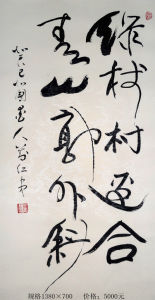 绿树村边合
青山郭外斜
癸巳
规格1380×700 价格：5000元